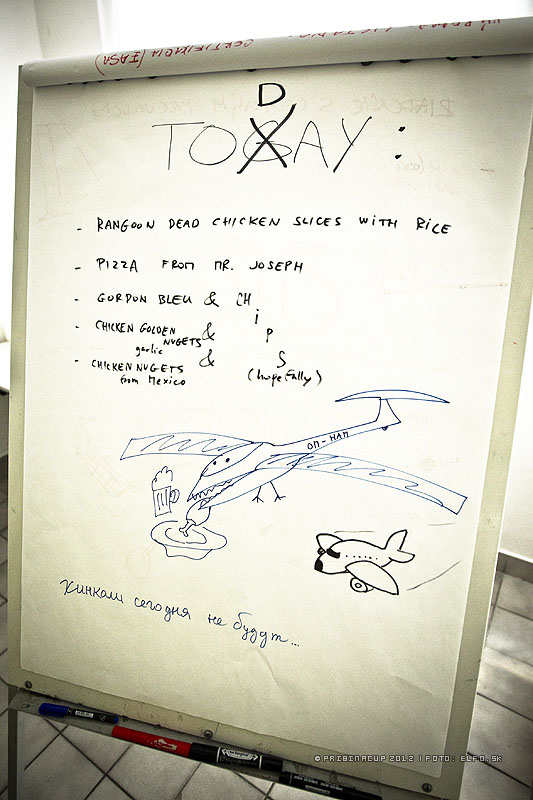 CERTIFIKÁCIA (EASA)
D
TOGAY :
- RANGOON DEAD CHICKEN SLICES WITH RICE
- PIZZA FROM MR. JOSEPH
- GORDON BLEU & CHIPS
- CHICKEN GOLDEN NUGETS &
garlic
- CHICKEN NUGETS &
from Mexico
(hopefully)
OM-HAM
Хинкали сегодня не будут...
© PRIBINACUP 2012 | FOTO: ELFO.SK